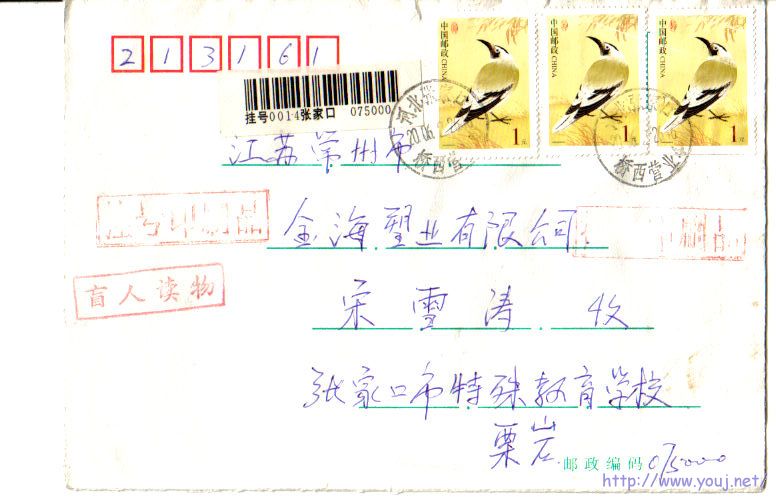 213161
中国邮政 CHINA 1元
中国邮政 CHINA 1元
中国邮政 CHINA 1元
挂号0014张家口 075000
江苏常州市
金海塑业有限公司
盲人读物
宋雪涛 收
张家口市特殊教育学校
栗岩
邮政编码 075000
http://www.youj.net/